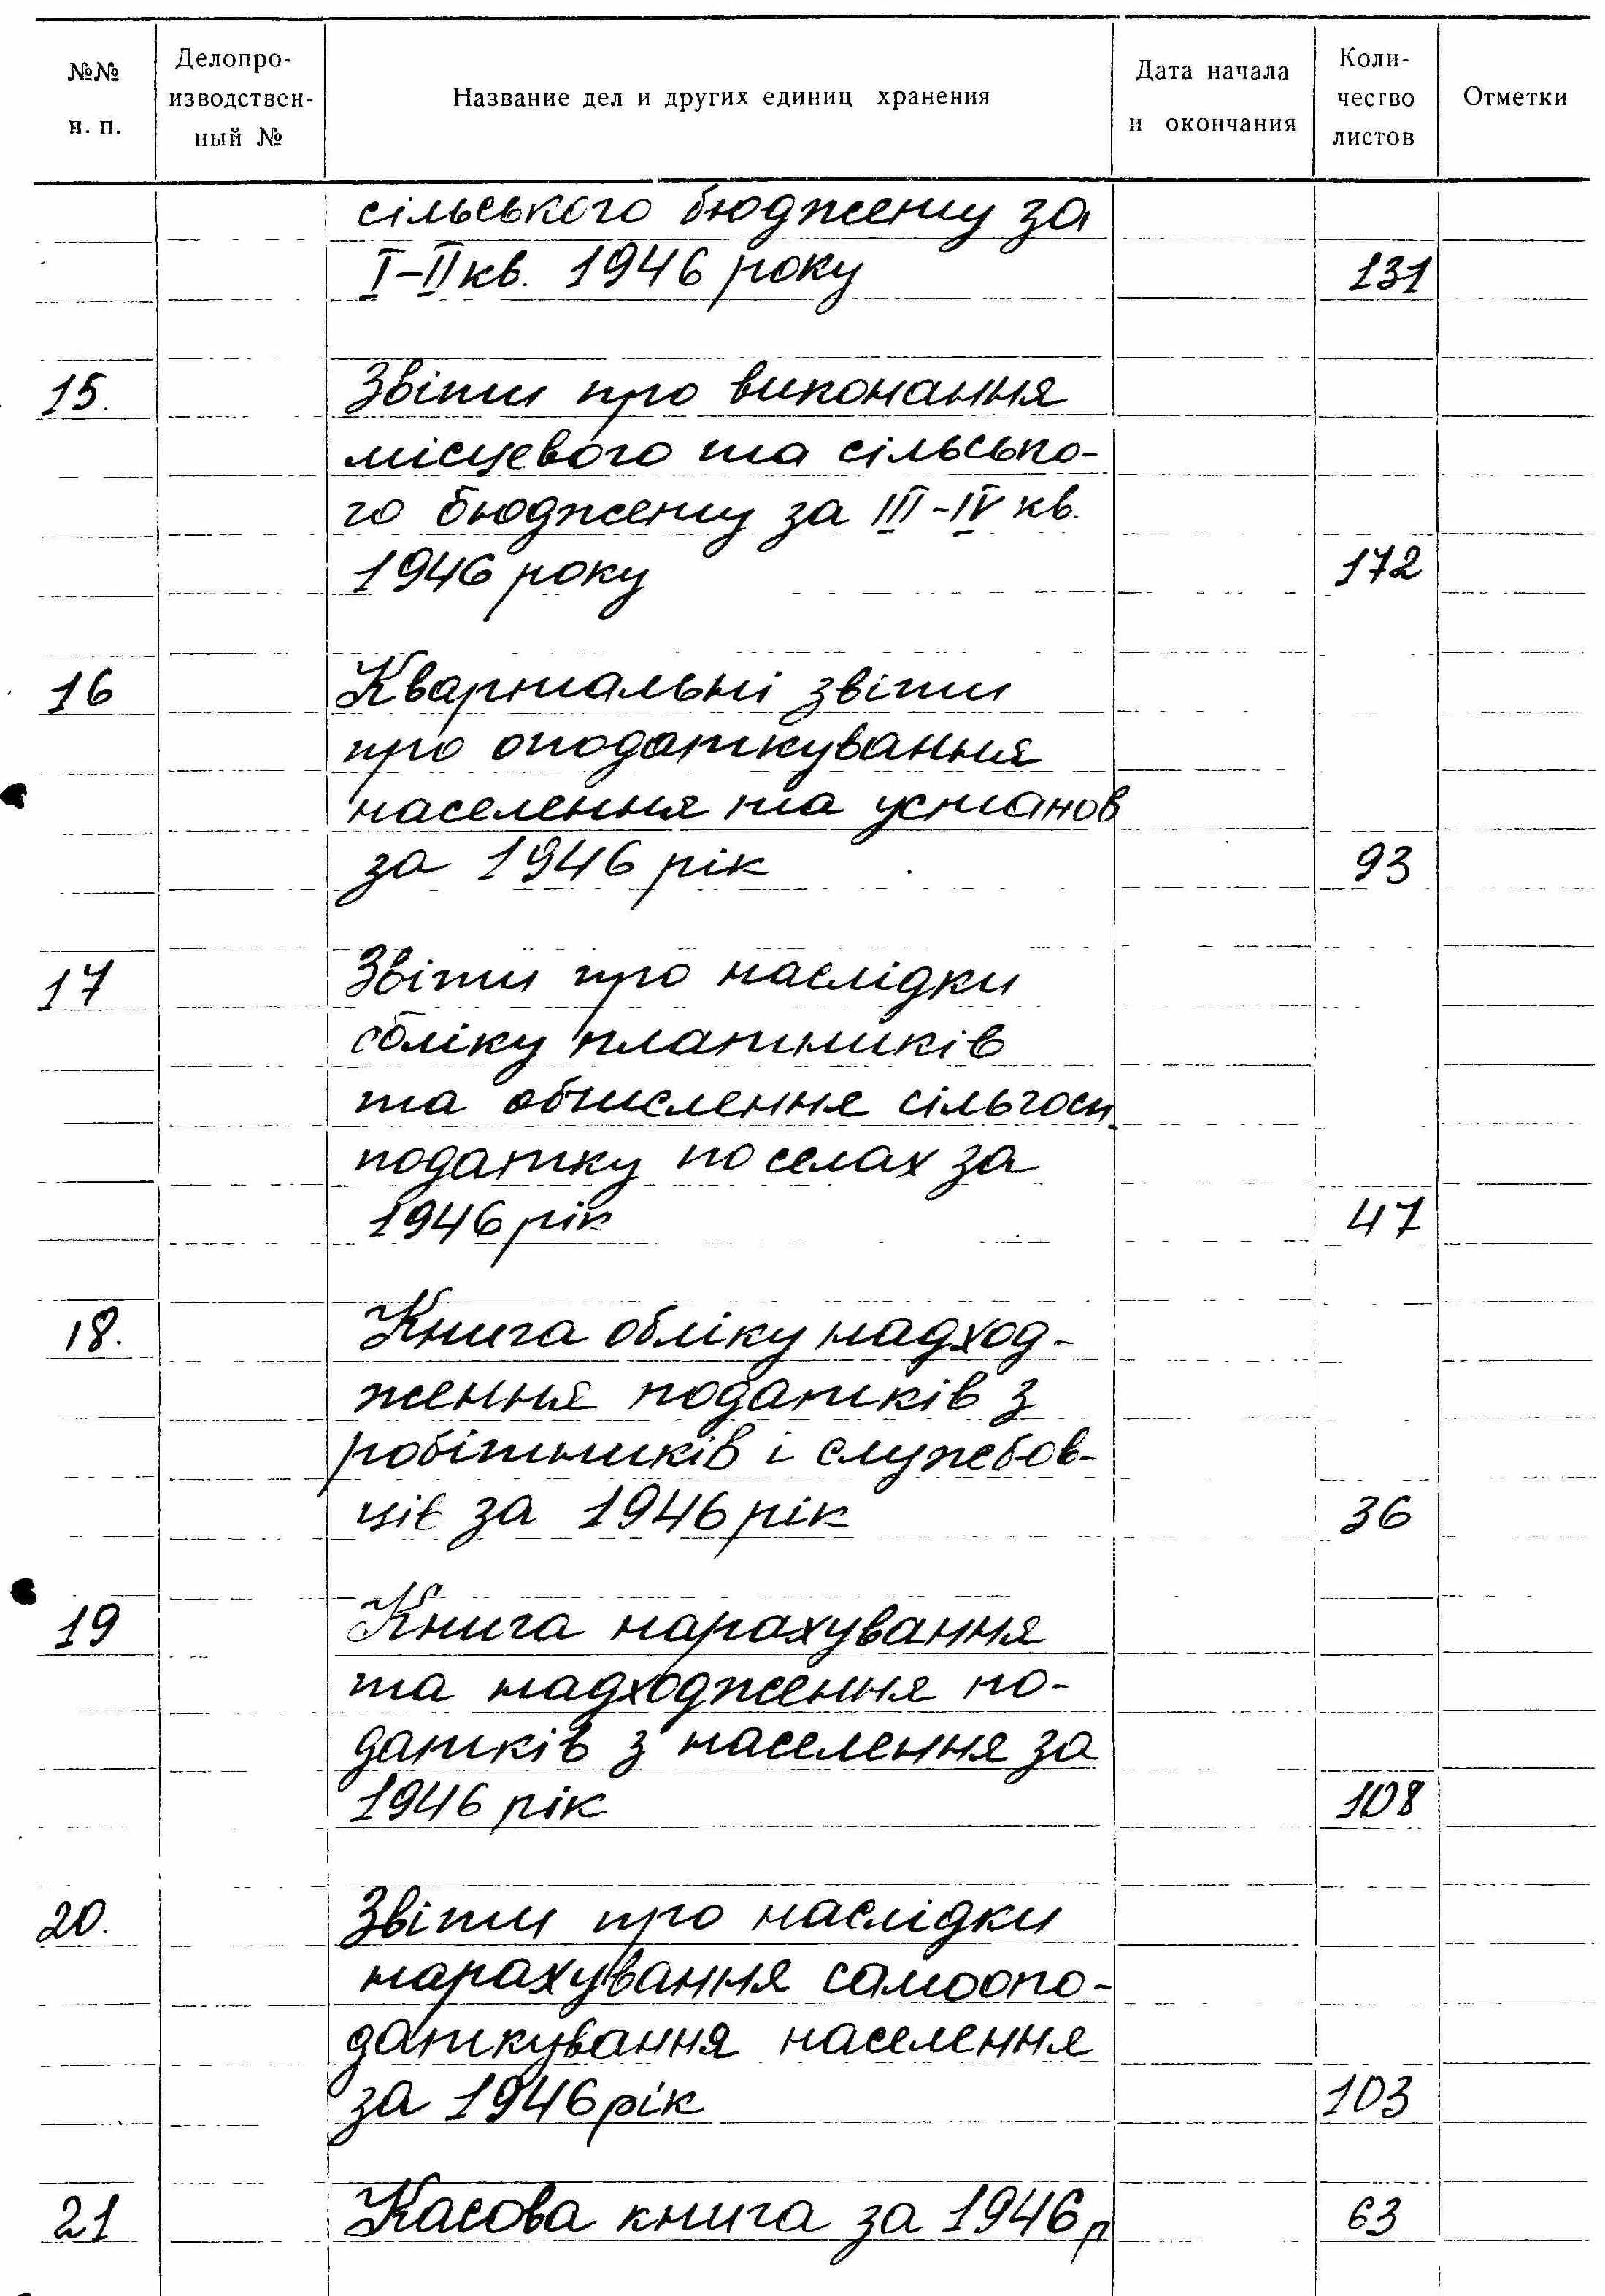 №№ н. п.
Делопро-
изводствен-
ный №
Название дел и других единиц хранения
Дата начала
и окончания
Коли-
чество
листов
Отметки
сільського бюджету за
I-II кв. 1946 року 131
15. Звіти про виконання
місцевого та сільсько-
го бюджету за III-IV кв.
1946 року 172
16 Квартальні звіти
про оподаткування
населення та установ
за 1946 рік 93
17 Звіти про наслідки
обліку платників
та обчислення сільгосп
податку по селах за
1946 рік 47
18. Книга обліку надход-
ження податків з
робітників і службов-
ців за 1946 рік 36
19 Книга нарахування
та надходження по-
датків з населення за
1946 рік 108
20. Звіти про наслідки
нарахування самоопо-
даткування населення
за 1946 рік 103
21 Касова книга за 1946 р 63